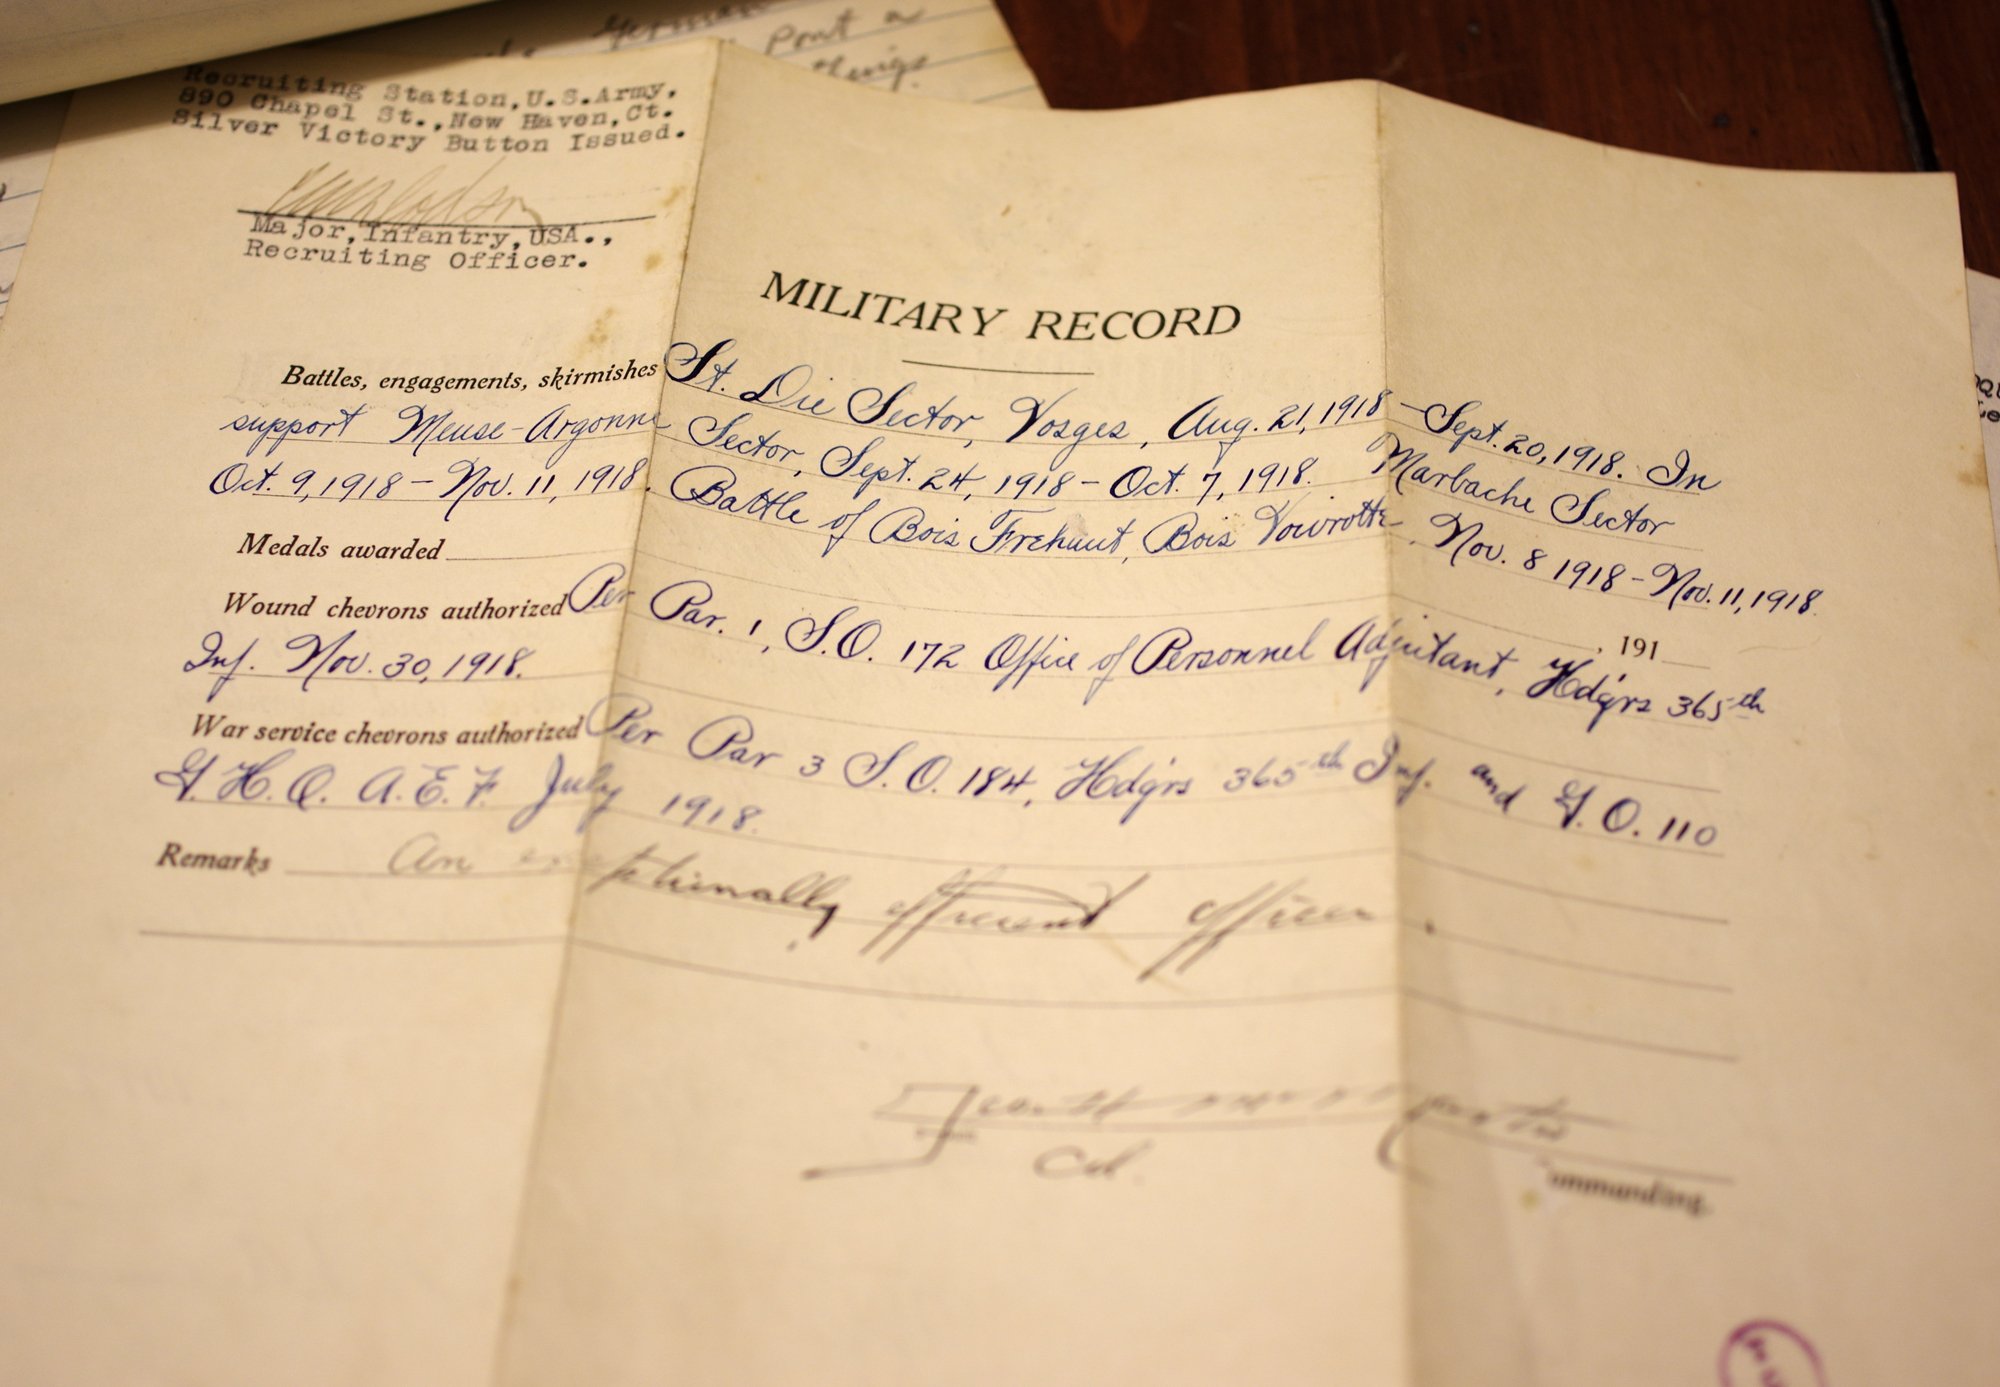 German
Pont a
things
Recruiting Station, U.S. Army,
890 Chapel St., New Haven, Ct.
Silver Victory Button Issued.
Major, Infantry, USA.,
Recruiting Officer.
MILITARY RECORD
Battles, engagements, skirmishes St. Die Sector, Vosges, Aug. 21, 1918 - Sept. 20, 1918. In
support Meuse-Argonne Sector, Sept. 24, 1918 - Oct. 7, 1918. Marbache Sector
Oct. 9, 1918 - Nov. 11, 1918. Battle of Bois Frehaut, Bois Voivrotte, Nov. 8 1918 - Nov. 11, 1918.
Medals awarded , 191
Wound chevrons authorized Per Par. 1, S.O. 172 Office of Personnel Adjutant, Hdq'rs 365th
Inf. Nov. 30, 1918.
War service chevrons authorized Per Par 3 S.O. 184, Hdq'rs 365th Inf. and G.O. 110
G.H.Q. A.E.F. July 1918.
Remarks An exceptionally efficient officer.
Col.
Commanding.